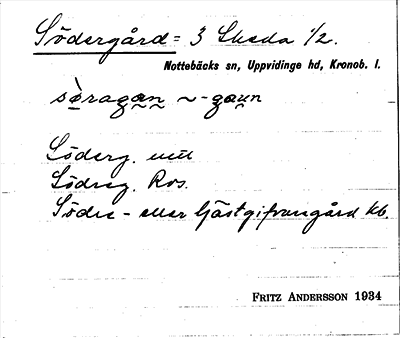 Södergård = 3 Skeda 1/2.
Nottebäcks sn, Uppvidinge hd, Kronob. l.
sø̀ragan ~-gaun
Söderg. utt
Södreg. Ros.
Södre- eller Gästgifvaregård kb.
FRITZ ANDERSSON 1934